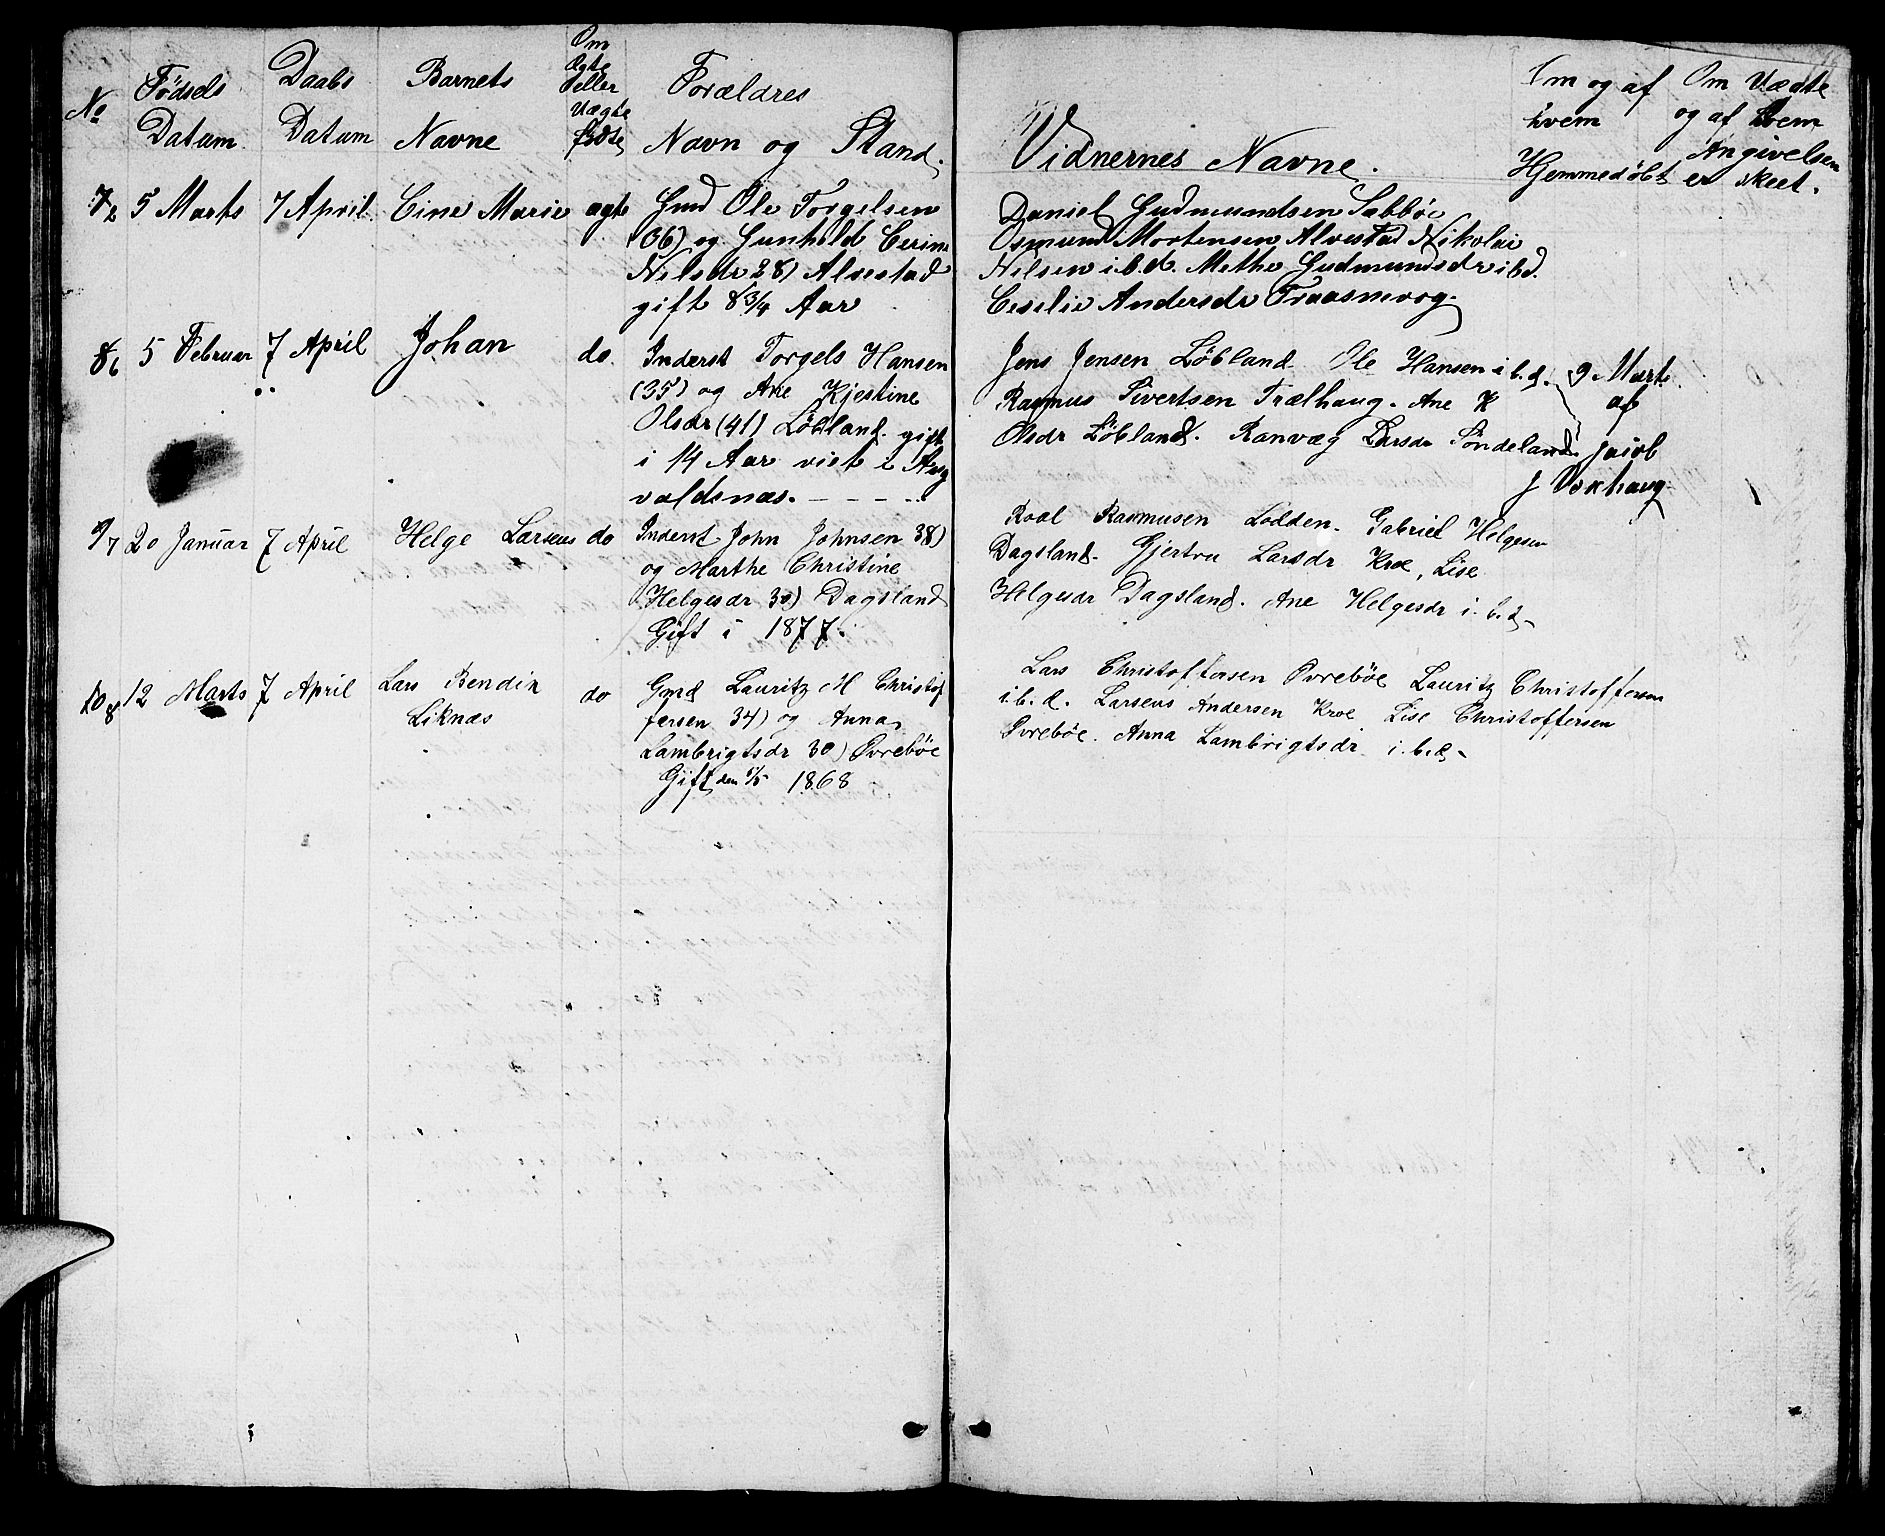 No
Födsels
Datum
Daabs
Datum
Barnets
Navne
Om
Ægte
eller
Uægte
Födte
Forældres
Navn og Stand.
Vidnernes Navne.
Om og af
hvem
Hjemmedöbt
Om Uægte
og af hvem
Angivelsen
er skeet.
7 5 Marts 7 April Cine Marie ægte
Gmd Ole Torgelsen
(36) og Gunhild Cerine
Nilsdr 28) Alvestad
gift 8 3/4 Aar
Daniel Gudmundsen Sabböe
Osmund Mortensen Alvestad Nikolai
Nilsen i.b.d. Methe Gudmundsdr ibd.
Cecilie Andersdr Traasnevog.
8 6 5 Februar 7 April Johan do
Inderst Torgels Hansen
(35) og Ane Kjestine
Olsdr (41) Löbland. gift
i 14 Aar viet i Aug
valdsnæs. - - - - -
Jens Jensen Löbland. Ole Hansen i b.d.
Rasmus Sivertsen Trælhaug. Ane K
Olsdr Löbland. Ranvæg Larsdr Söndeland.
9 Marts
af
Jacob
J Voxhaug.
9 7 20 Januar 7 April Helge Larseus do
Inderst John Johnsen 38)
og Marthe Christine
Helgesdr 30) Dagsland
Gift i 1877.
Roal Rasmusen Lodden. Gabriel Helgesen
Dagsland. Gjertru Larsdr Kroe, Lise
Helgesdr Dagsland. Ane Helgesdr i.b.d.
10 8 12 Marts 7 April Lars Bendik
Liknæs
do
Gmd Lauritz M Christof
fersen 34) og Anna
Lambrigtsdr 30) Ovreböe
Gift den 1868
Lars Christoffersen Ovreböe Lauritz Christoffersen
i.b.d. Larseus Andersen Kroe Lise Christoffersen
Ovreböe. Anna Lambrigtsdr i.b.d.